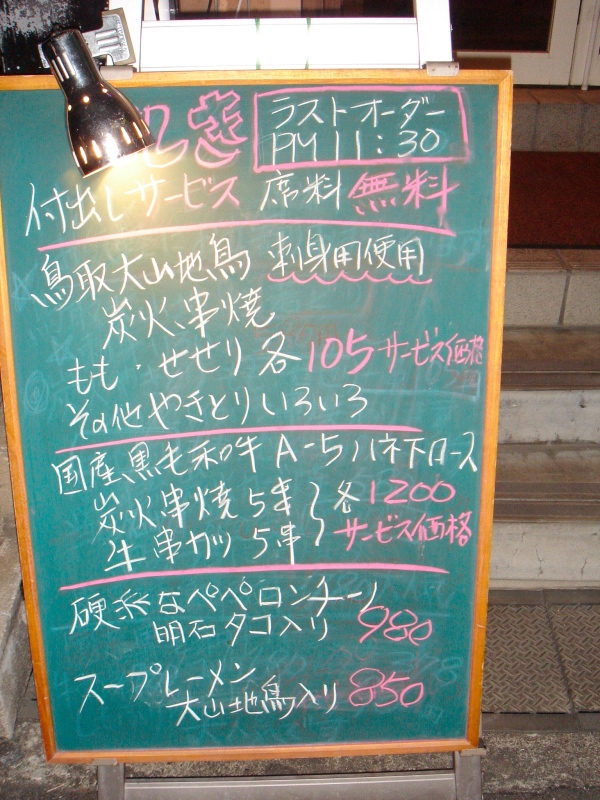 ラストオーダー
PM 11:30
付出しサービス 席料 無料
鳥取大山地鳥 刺身用使用
炭火串焼
もも・せせり 各105サービス価格
その他やきとりいろいろ
国産黒毛和牛 A-5ハネ下ロース
炭火串焼 5串 各1200
牛串カツ 5串 サービス価格
硬派なペペロンチーノ
明石タコ入リ 980
スープレーメン
大山地鳥入リ 850